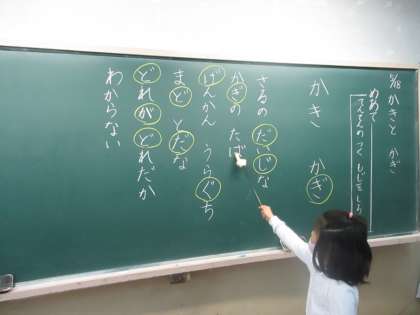 5/18 かきと かぎ
めあて
てんてんの つく もじを しろ
かき かぎ
さるの だいじな
かぎの たば
げんかん うらぐち
まど とだな
どれが どれだか
わからない